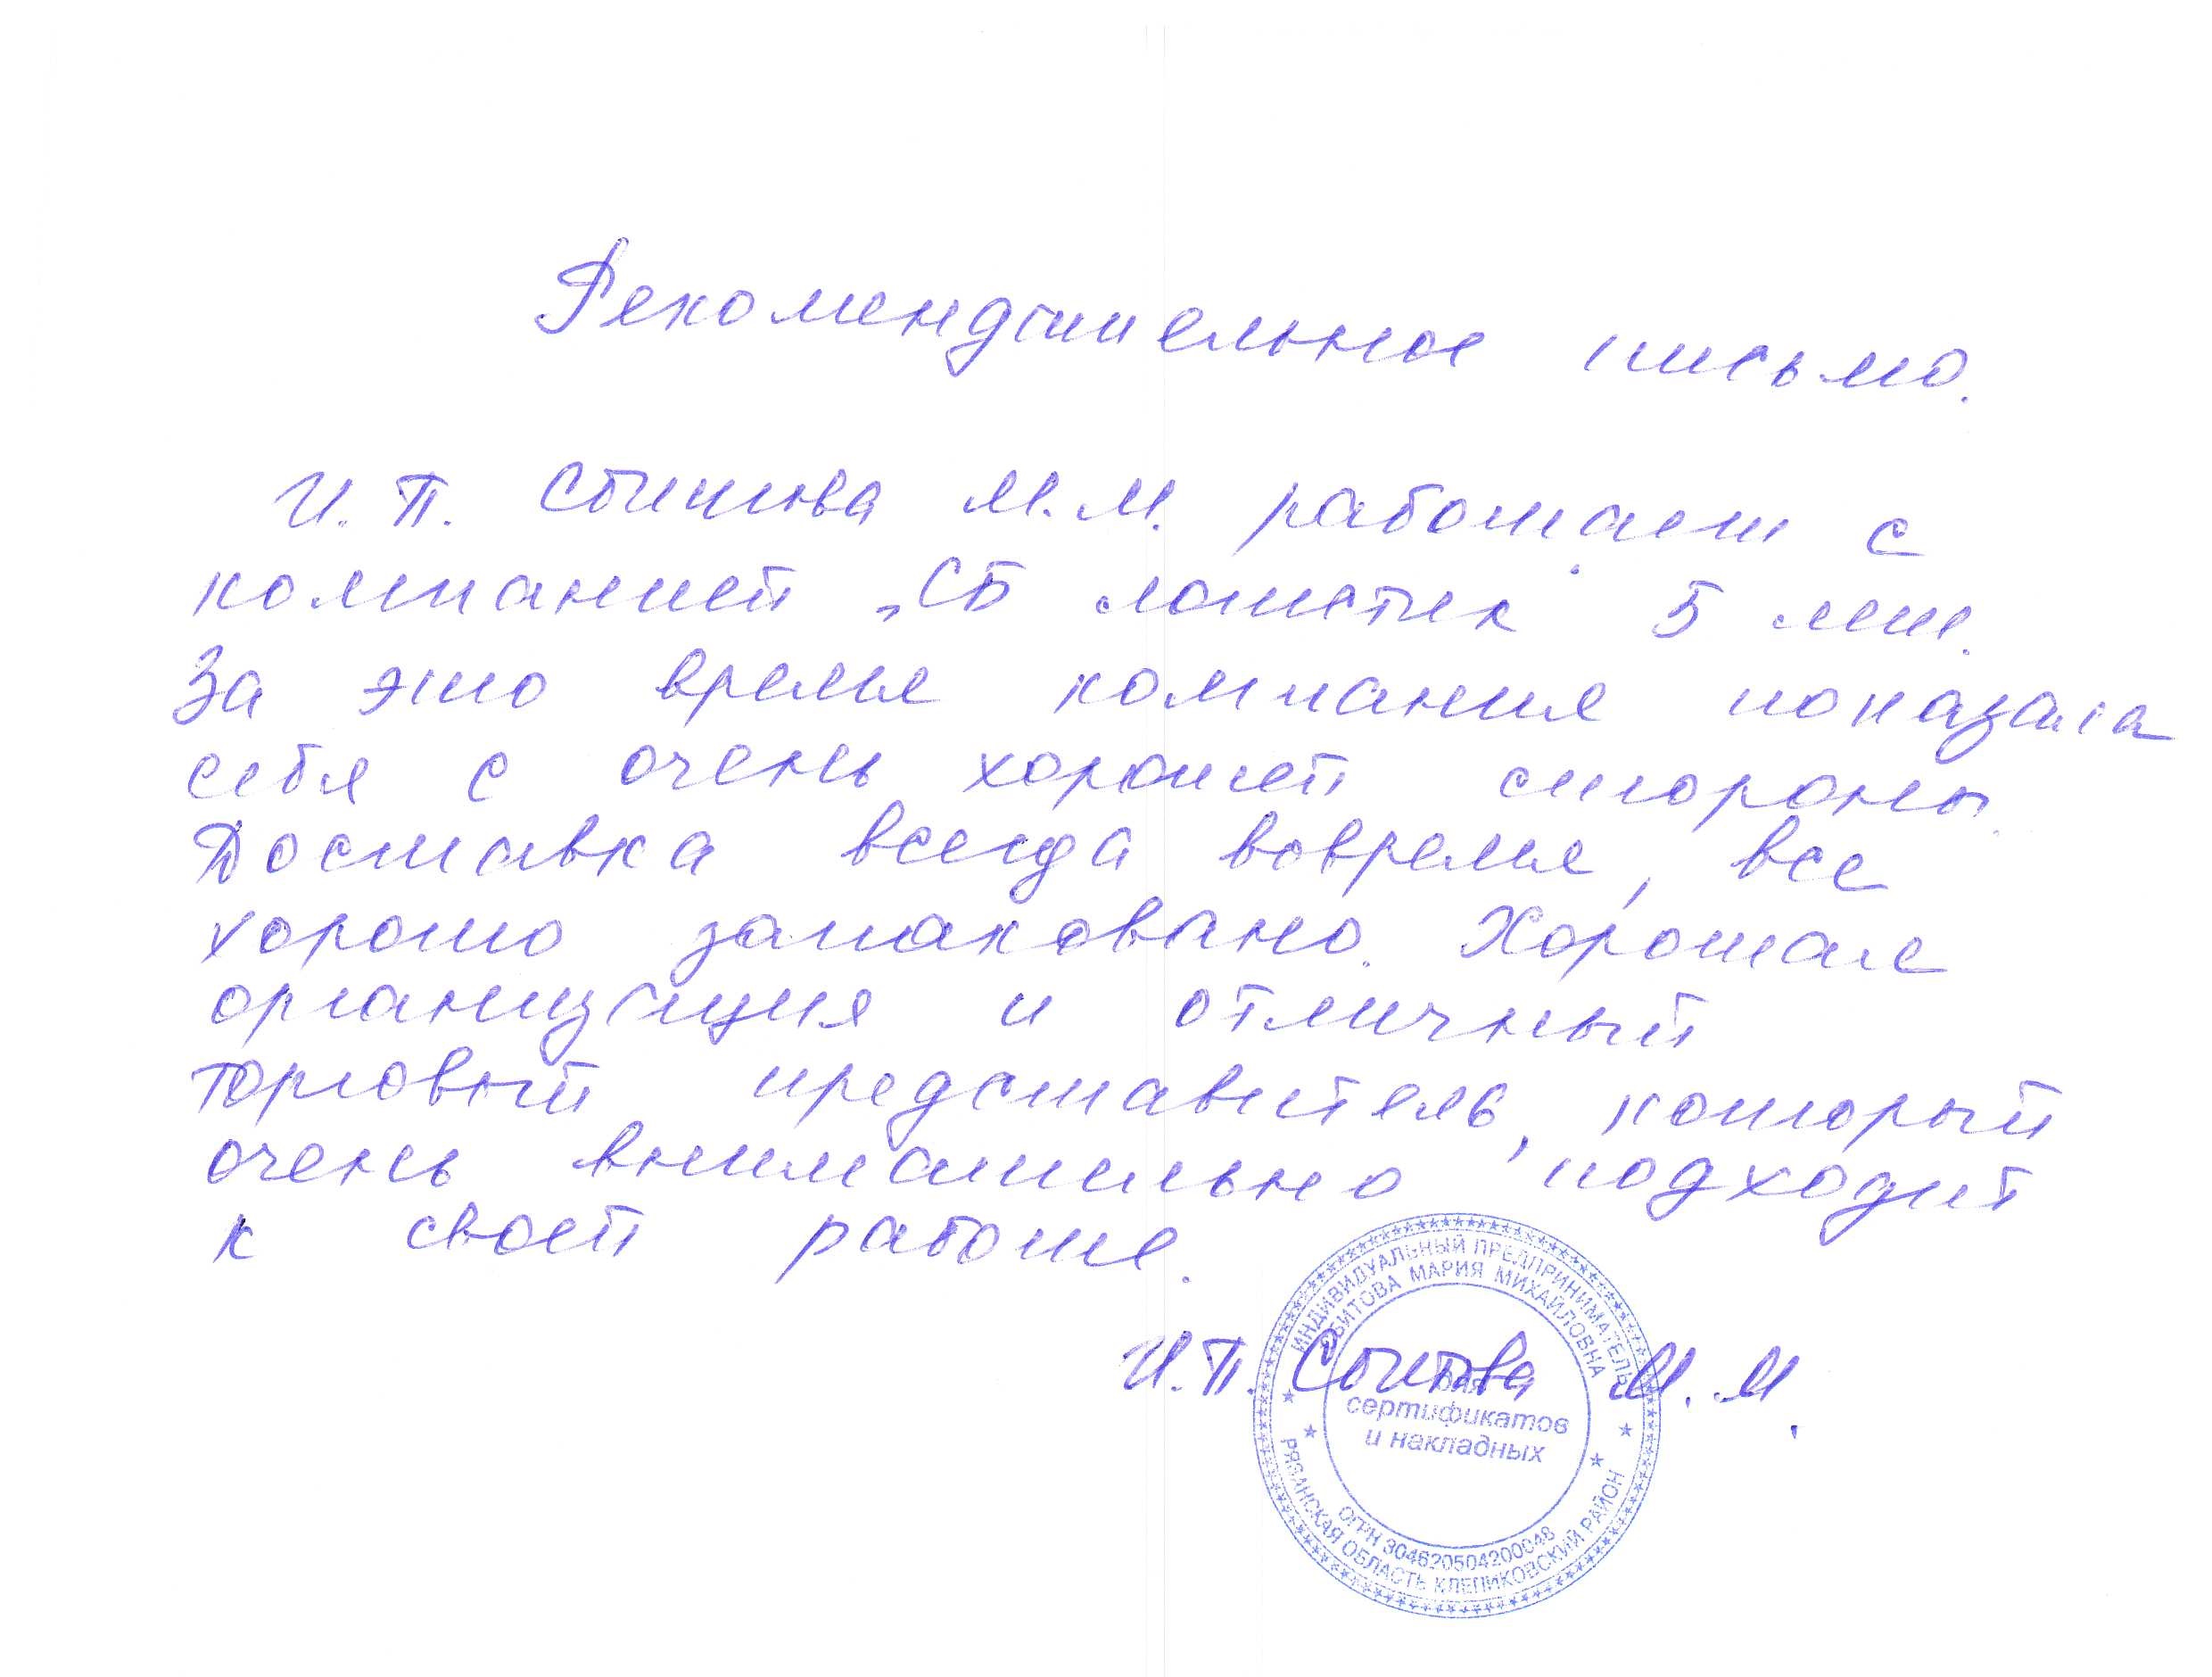 Рекомендательное письмо.
И.П. Сбитова М.М. работает с
компанией „СБ логистик" 5 лет.
За это время компания показала
себя с очень хорошей стороны.
Доставка всегда вовремя, все
хорошо запаковано. Хорошая
организация и отличный
торговый представитель, который
очень внимательно подходит
к своей работе.
И.П. Сбитова М.М.
ИНДИВИДУАЛЬНЫЙ ПРЕДПРИНИМАТЕЛЬ
СБИТОВА МАРИЯ МИХАЙЛОВНА
для
сертификатов
и накладных
ОГРН 304620504200048
РЯЗАНСКАЯ ОБЛАСТЬ КЛЕПИКОВСКИЙ РАЙОН